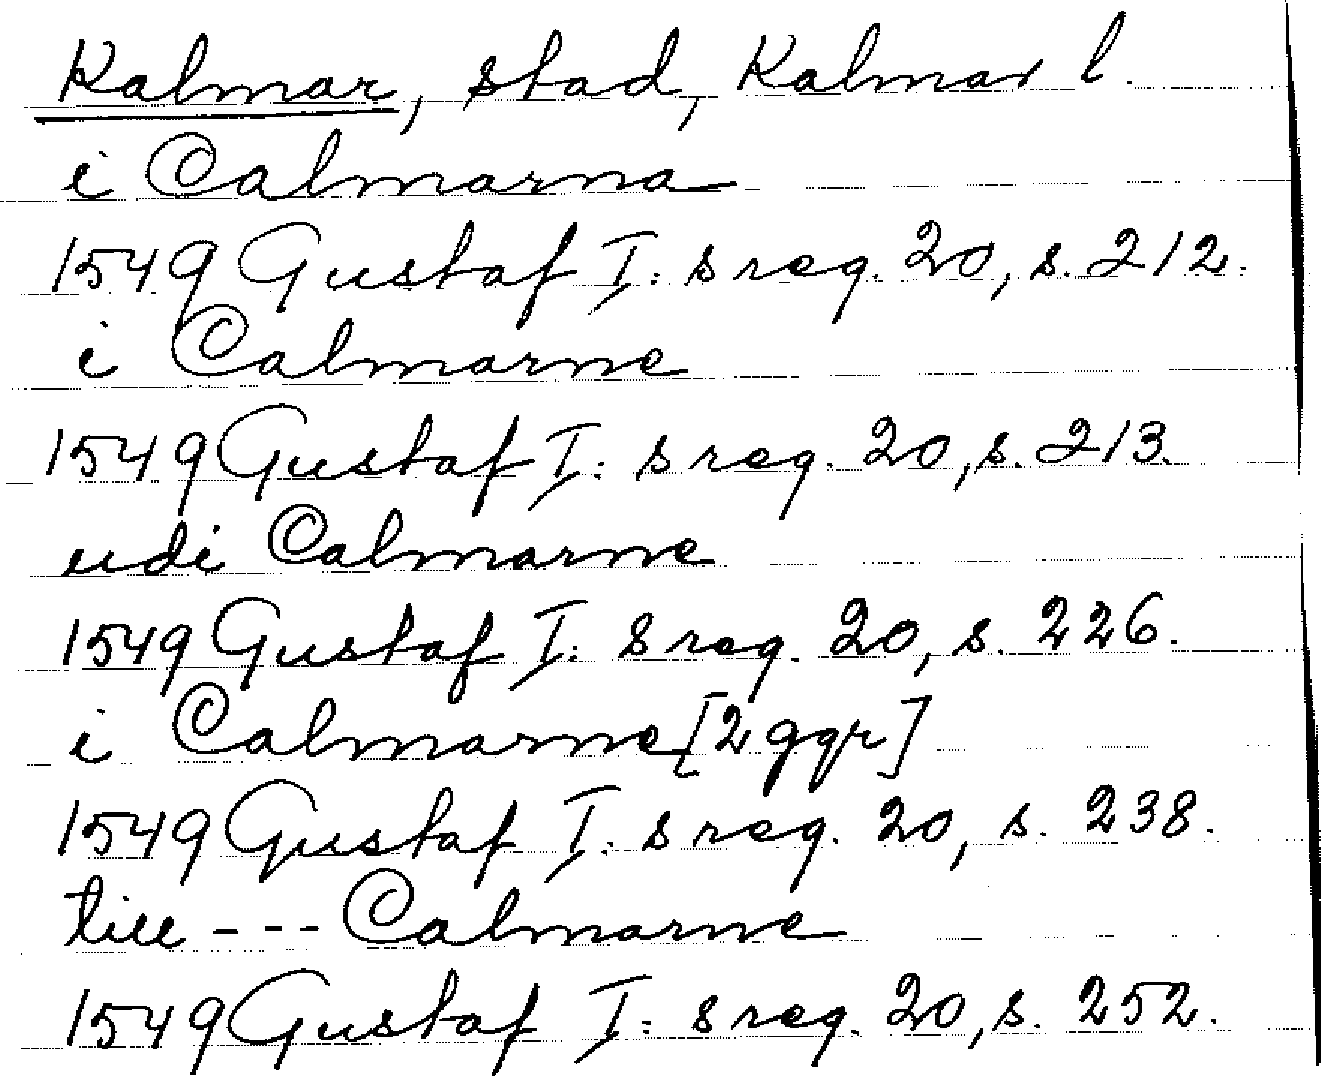 Kalmar, stad, Kalmar l.
i Calmarna
1549 Gustaf I: s reg. 20, s. 212.
i Calmarne
1549 Gustaf I: s reg. 20, s. 213.
udi Calmarne
1549 Gustaf I: s reg. 20, s. 226.
i Calmarne [2 ggr]
1549 Gustaf I: s reg. 20, s. 238.
till --- Calmarne
1549 Gustaf I: s reg. 20, s. 252.